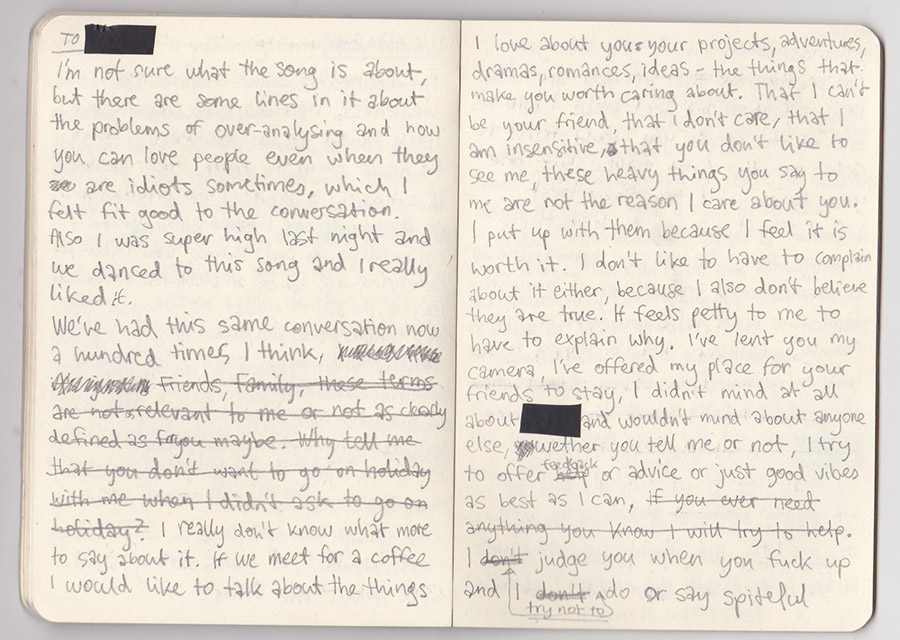 TO
I'm not sure what the song is about,
but there are some lines in it about
the problems of over-analysing and how
you can love people even when they
are idiots sometimes, which I
felt fit good to the conversation.
Also I was super high last night and
we danced to this song and I really
liked it.
We've had this same conversation now
a hundred times, I think,
Friends, Family, these terms
are not relevant to me or not as clearly
defined as for you maybe. Why tell me
that you don't want to go on holiday
with me when I didn't ask to go on
holiday? I really don't know what more
to say about it. If we meet for a coffee
I would like to talk about the things
I love about you: your projects, adventures,
dramas, romances, ideas - the things that
make you worth caring about. That I can't
be your friend, that I don't care, that I
am insensitive, that you don't like to
see me, these heavy things you say to
me are not the reason I care about you.
I put up with them because I feel it is
worth it. I don't like to have to complain
about it either, because I also don't believe
they are true. It feels petty to me to
have to explain why. I've lent you my
camera, I've offered my place for your
friends to stay, I didn't mind at all
about and wouldn't mind about anyone
else, wether you tell me or not, I try
to offer help feedback or advice or just good vibes
as best as I can, if you ever need
anything you know I will try to help.
I don't judge you when you fuck up
and I don't do or say spiteful
try not to